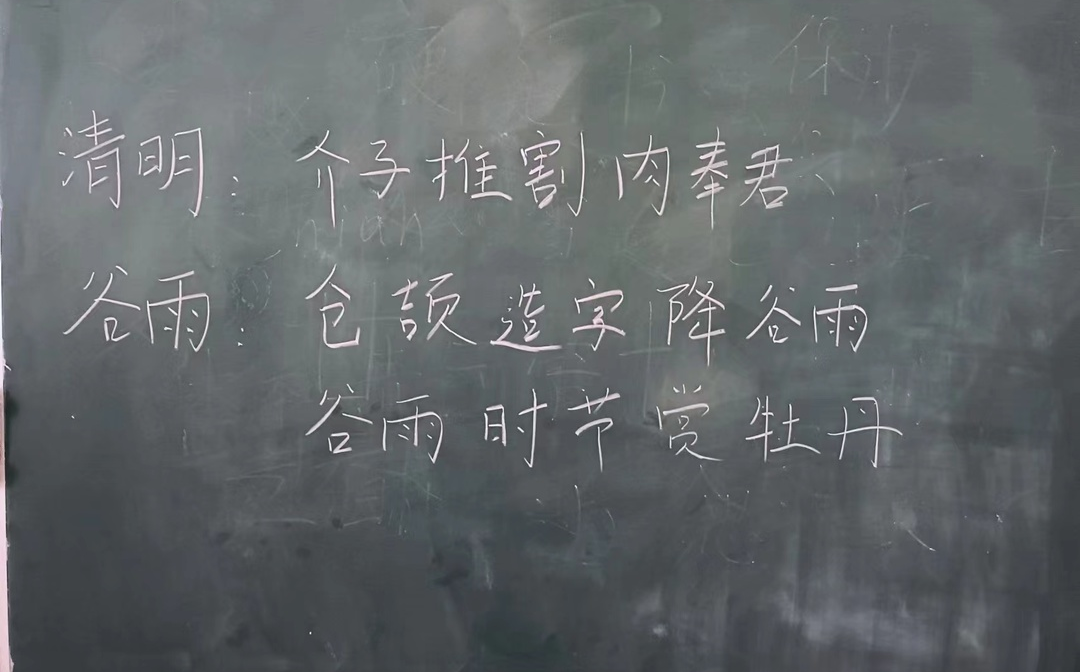 清明：介子推割肉奉君
谷雨：仓颉造字降谷雨
谷雨时节赏牡丹